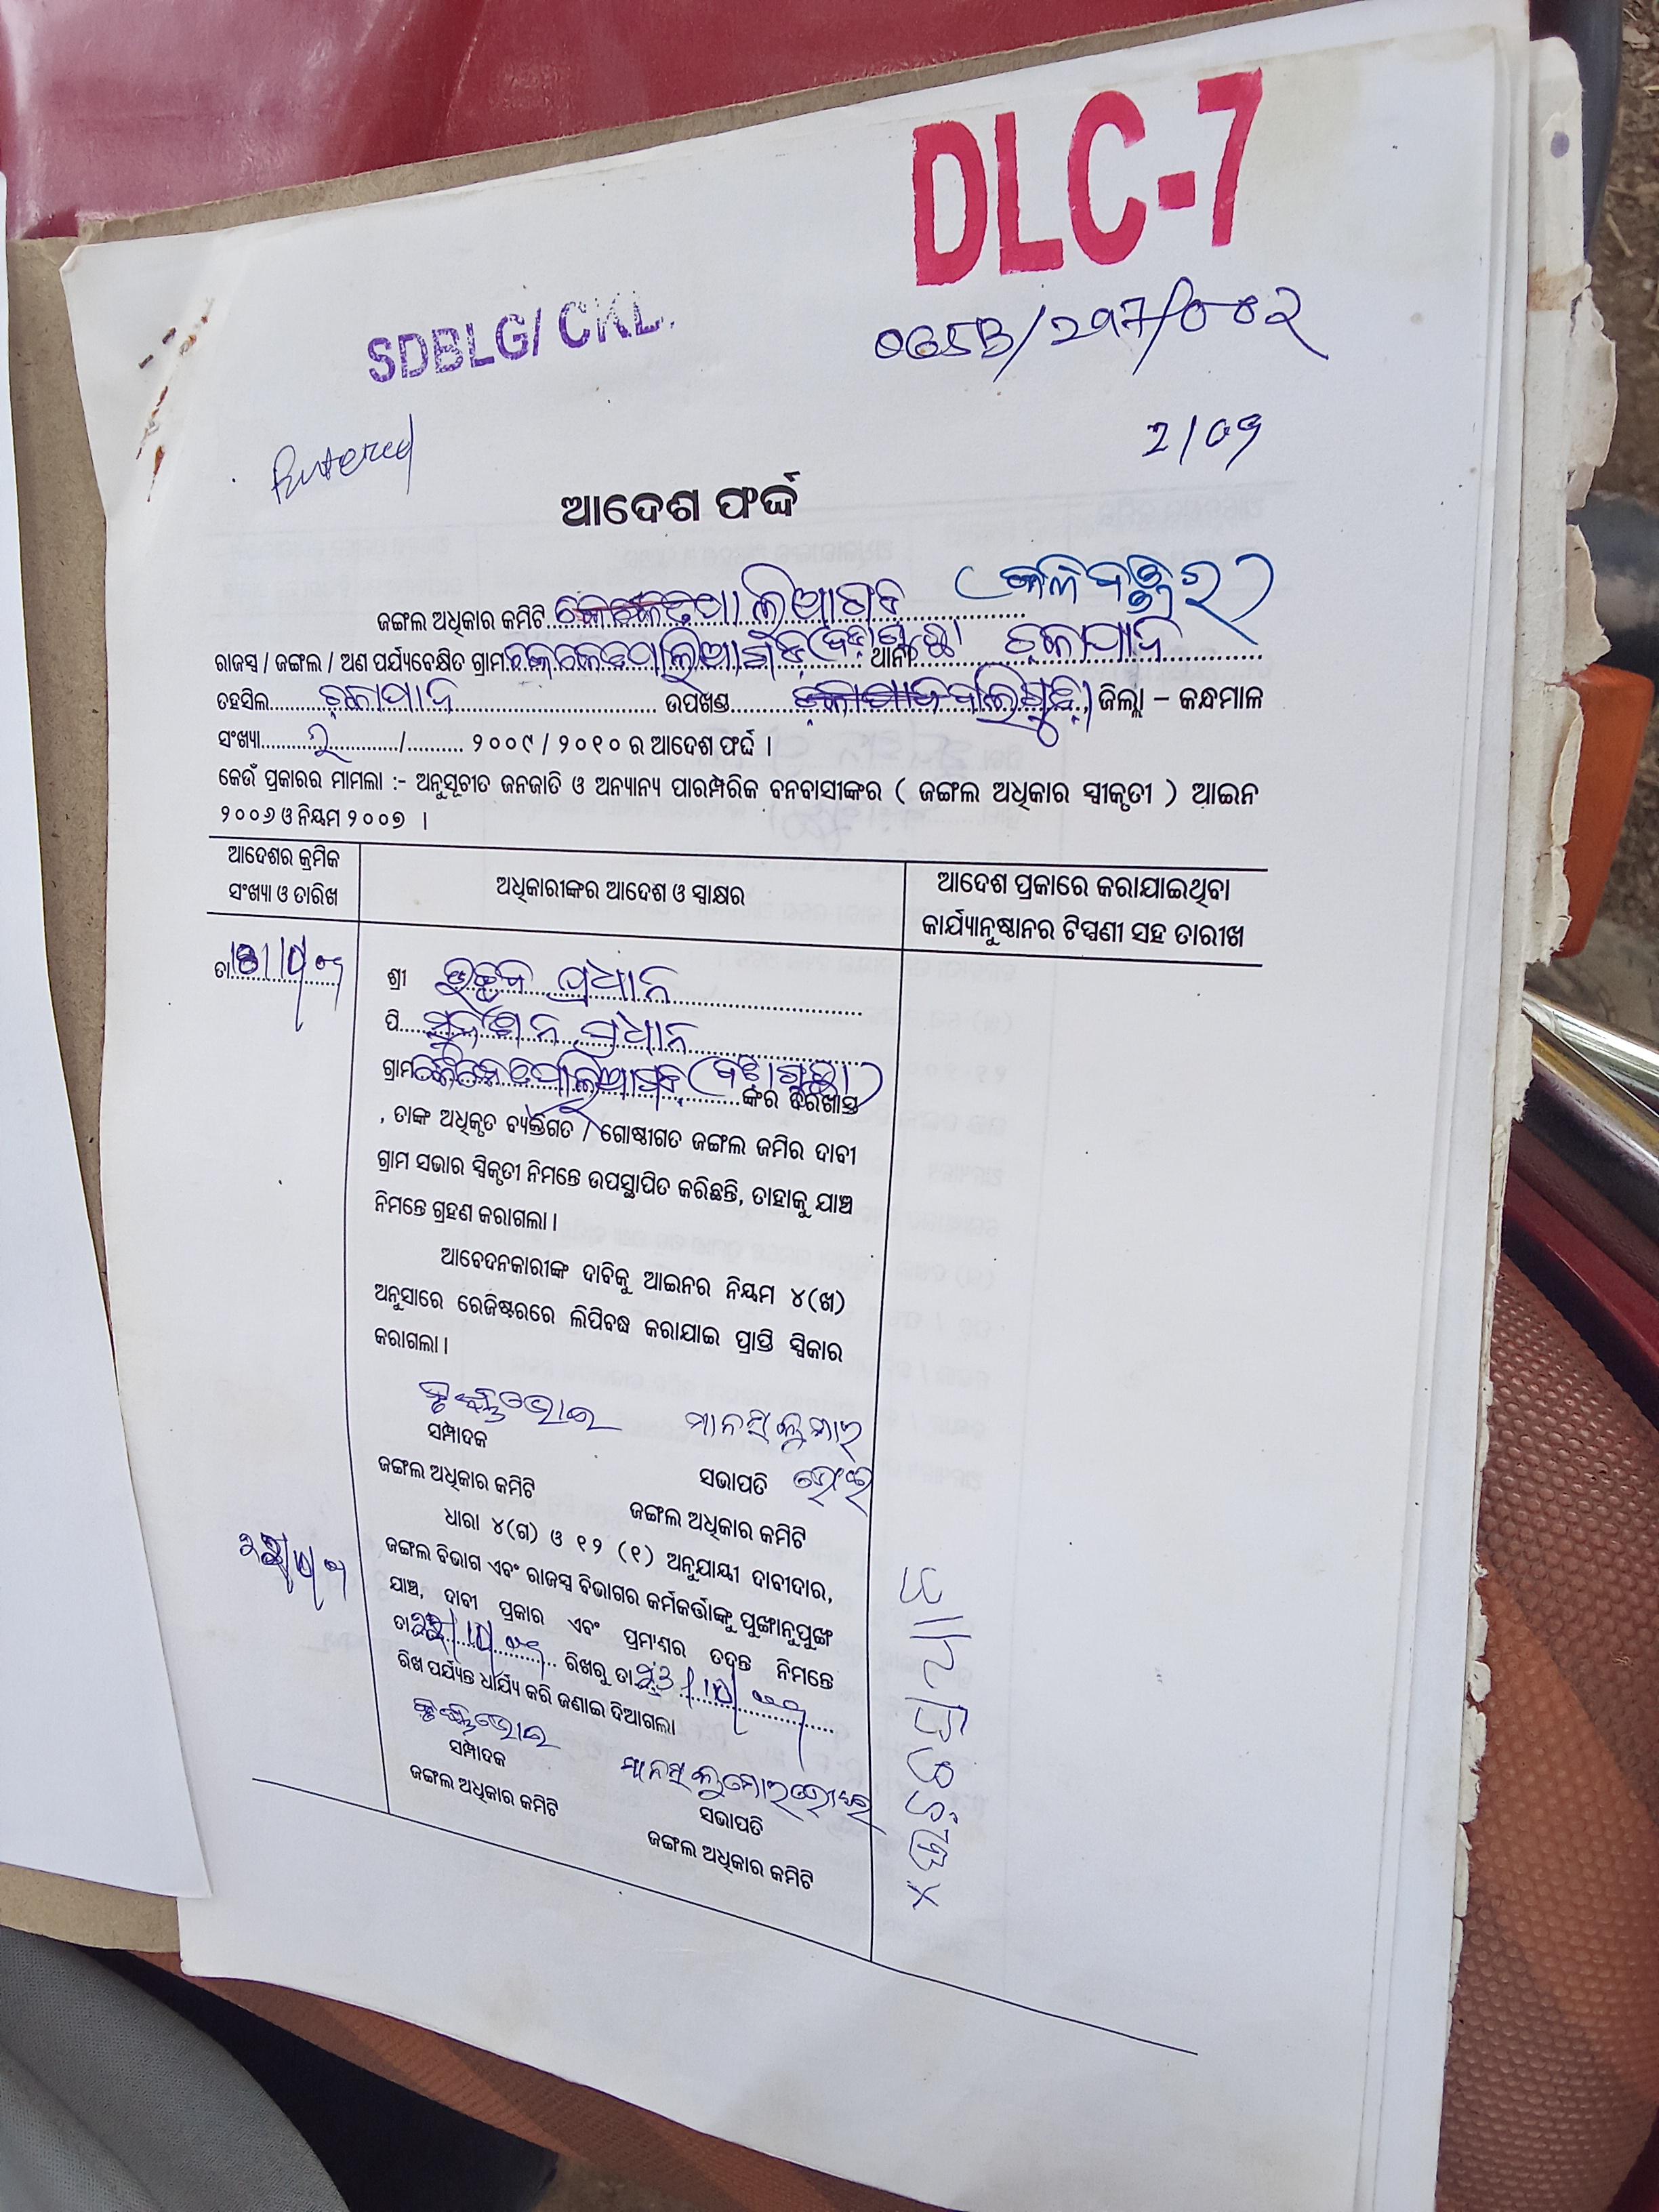 DLC-7
SDBLG/ CKL.
065B/297/002
Entered
2/09
ଆଦେଶ ଫର୍ଦ୍ଦ
ଜଙ୍ଗଲ ଅଧିକାର କମିଟି
ରାଜସ୍ୱ / ଜଙ୍ଗଲ / ଅଣ ପର୍ଯ୍ୟବେକ୍ଷିତ ଗ୍ରାମ ଥାନା ଚକାପାଦ
ତହସିଲ ଚକାପାଦ ଉପଖଣ୍ଡ ବାଲିଗୁଡ଼ା ଜିଲ୍ଲା – କନ୍ଧମାଳ
ସଂଖ୍ୟା ୨ / ୨୦୦୯ / ୨୦୧୦ ର ଆଦେଶ ଫର୍ଦ୍ଦ ।
କେଉଁ ପ୍ରକାରର ମାମଲା :- ଅନୁସୂଚୀତ ଜନଜାତି ଓ ଅନ୍ୟାନ୍ୟ ପାରମ୍ପରିକ ବନବାସୀଙ୍କର ( ଜଙ୍ଗଲ ଅଧିକାର ସ୍ୱୀକୃତୀ ) ଆଇନ
୨୦୦୬ ଓ ନିୟମ ୨୦୦୭ ।
ଆଦେଶର କ୍ରମିକ
ସଂଖ୍ୟା ଓ ତାରିଖ
ଅଧିକାରୀଙ୍କର ଆଦେଶ ଓ ସ୍ୱାକ୍ଷର
ଆଦେଶ ପ୍ରକାରେ କରାଯାଇଥିବା
କାର୍ଯ୍ୟାନୁଷ୍ଠାନର ଟିପ୍ପଣୀ ସହ ତାରୀଖ
ତା
ଶ୍ରୀ ଉଚ୍ଛବ ପ୍ରଧାନ
ପି ପ୍ରଧାନ
ଗ୍ରାମ ଙ୍କର ଦରଖାସ୍ତ
, ତାଙ୍କ ଅଧିକୃତ ବ୍ୟକ୍ତିଗତ / ଗୋଷ୍ଠୀଗତ ଜଙ୍ଗଲ ଜମିର ଦାବୀ
ଗ୍ରାମ ସଭାର ସ୍ୱିକୃତୀ ନିମନ୍ତେ ଉପସ୍ଥାପିତ କରିଛନ୍ତି, ତାହାକୁ ଯାଞ୍ଚ
ନିମନ୍ତେ ଗ୍ରହଣ କରାଗଲା ।
ଆବେଦନକାରୀଙ୍କ ଦାବିକୁ ଆଇନର ନିୟମ ୪(ଖ)
ଅନୁସାରେ ରେଜିଷ୍ଟରରେ ଲିପିବଦ୍ଧ କରାଯାଇ ପ୍ରାପ୍ତି ସ୍ୱିକାର
କରାଗଲା ।
ମାନସ କୁମାର
ସମ୍ପାଦକ
ସଭାପତି
ଜଙ୍ଗଲ ଅଧିକାର କମିଟି
ଜଙ୍ଗଲ ଅଧିକାର କମିଟି
ଧାରା ୪(ଗ) ଓ ୧୨ (୧) ଅନୁଯାୟୀ ଦାବୀଦାର,
ଜଙ୍ଗଲ ବିଭାଗ ଏବଂ ରାଜସ୍ୱ ବିଭାଗର କର୍ମକର୍ତ୍ତାଙ୍କୁ ପୁଙ୍ଖାନୁପୁଙ୍ଖ
ଯାଞ୍ଚ, ଦାବୀ ପ୍ରକାର ଏବଂ ପ୍ରମାଣର ତଦନ୍ତ ନିମନ୍ତେ
ତା ରିଖରୁ ତା
ରିଖ ପର୍ଯ୍ୟନ୍ତ ଧାର୍ଯ୍ୟ କରି ଜଣାଇ ଦିଆଗଲା
ସମ୍ପାଦକ
ମାନସ କୁମାର
ଜଙ୍ଗଲ ଅଧିକାର କମିଟି
ସଭାପତି
ଜଙ୍ଗଲ ଅଧିକାର କମିଟି